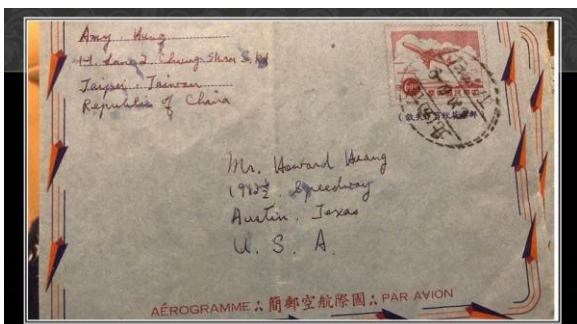 Amy Huang
14. Lane 2. Chung Shan S. Rd
Taipei. Taiwan
Republic of China
Mr. Howard Huang
1912½ Speedway
Austin. Texas
U. S. A.
AÉROGRAMME ∴ 簡郵空航際國 ∴ PAR AVION